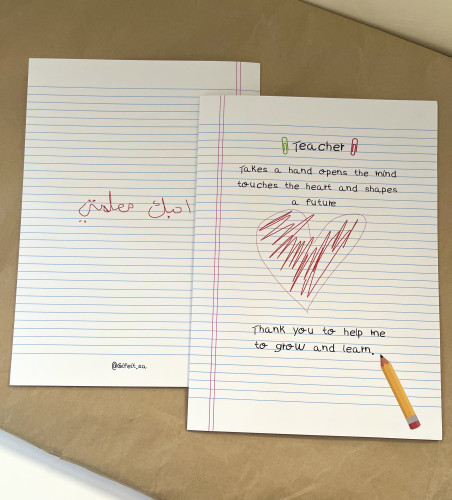 احبك معلمتي
Teacher
Takes a hand opens the mind
touches the heart and shapes
a future
Thank you to help me
to grow and learn.